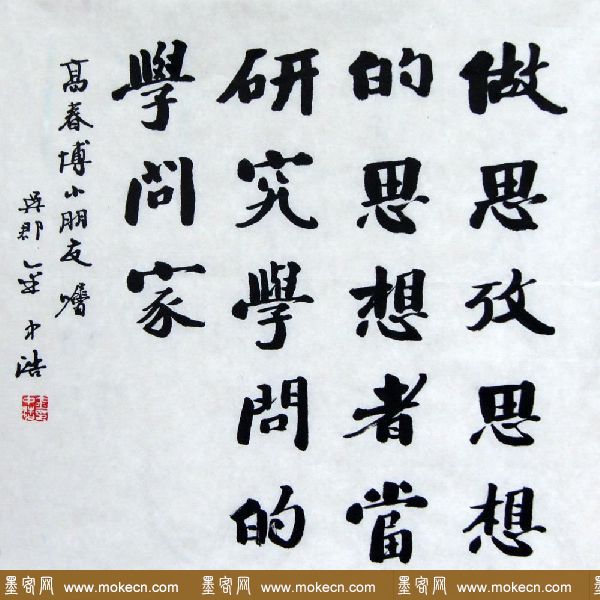 做思攷思想
的思想者當
研究學問的
學問家
高春博小朋友囑
吴郡金中浩
墨客网 www.mokecn.com 墨客网 www.mokecn.com 墨客网 www.mokecn.com